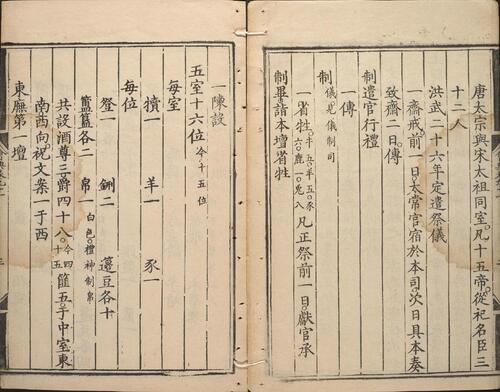 唐太宗與宋太祖同室凡十五帝從祀名臣三
十二人
洪武二十六年定遣祭儀
一齋戒前一日太常官宿於本司次日具本奏
致齋二日傳
制遣官行禮
一傳
制儀見儀制司
一省牲牛五羊五豕六鹿一兔八凡正祭前一日獻官承
制畢詣本壇省牲
一陳設
五室十六位今十五位
每室
犢一 羊一 豕一
每位
登一 鉶二 籩豆各十
簠簋各二 帛一白色禮神制帛
共設酒尊三爵四十八今四十五篚五于中室東
南西向祝文案一于西
東廡第一壇